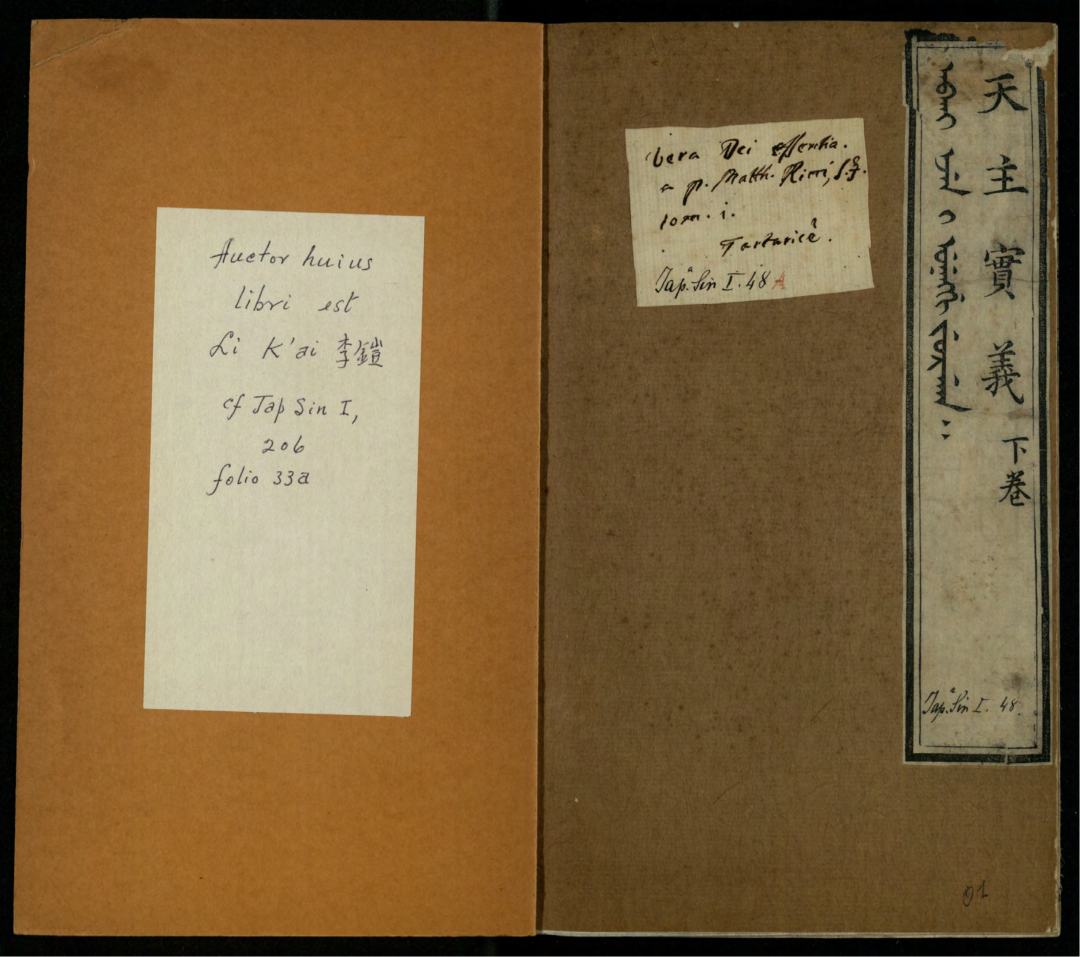 Auctor huius
libri est
Li K'ai 李鎧
cf Jap Sin I,
206
folio 33a
vera Dei essentia.
a p. Matth. Ricci, S.J.
tom. i.
Tartaricè.
Jap. Sin I. 48 A
天主實義下卷
Jap. Sin I. 48.
01